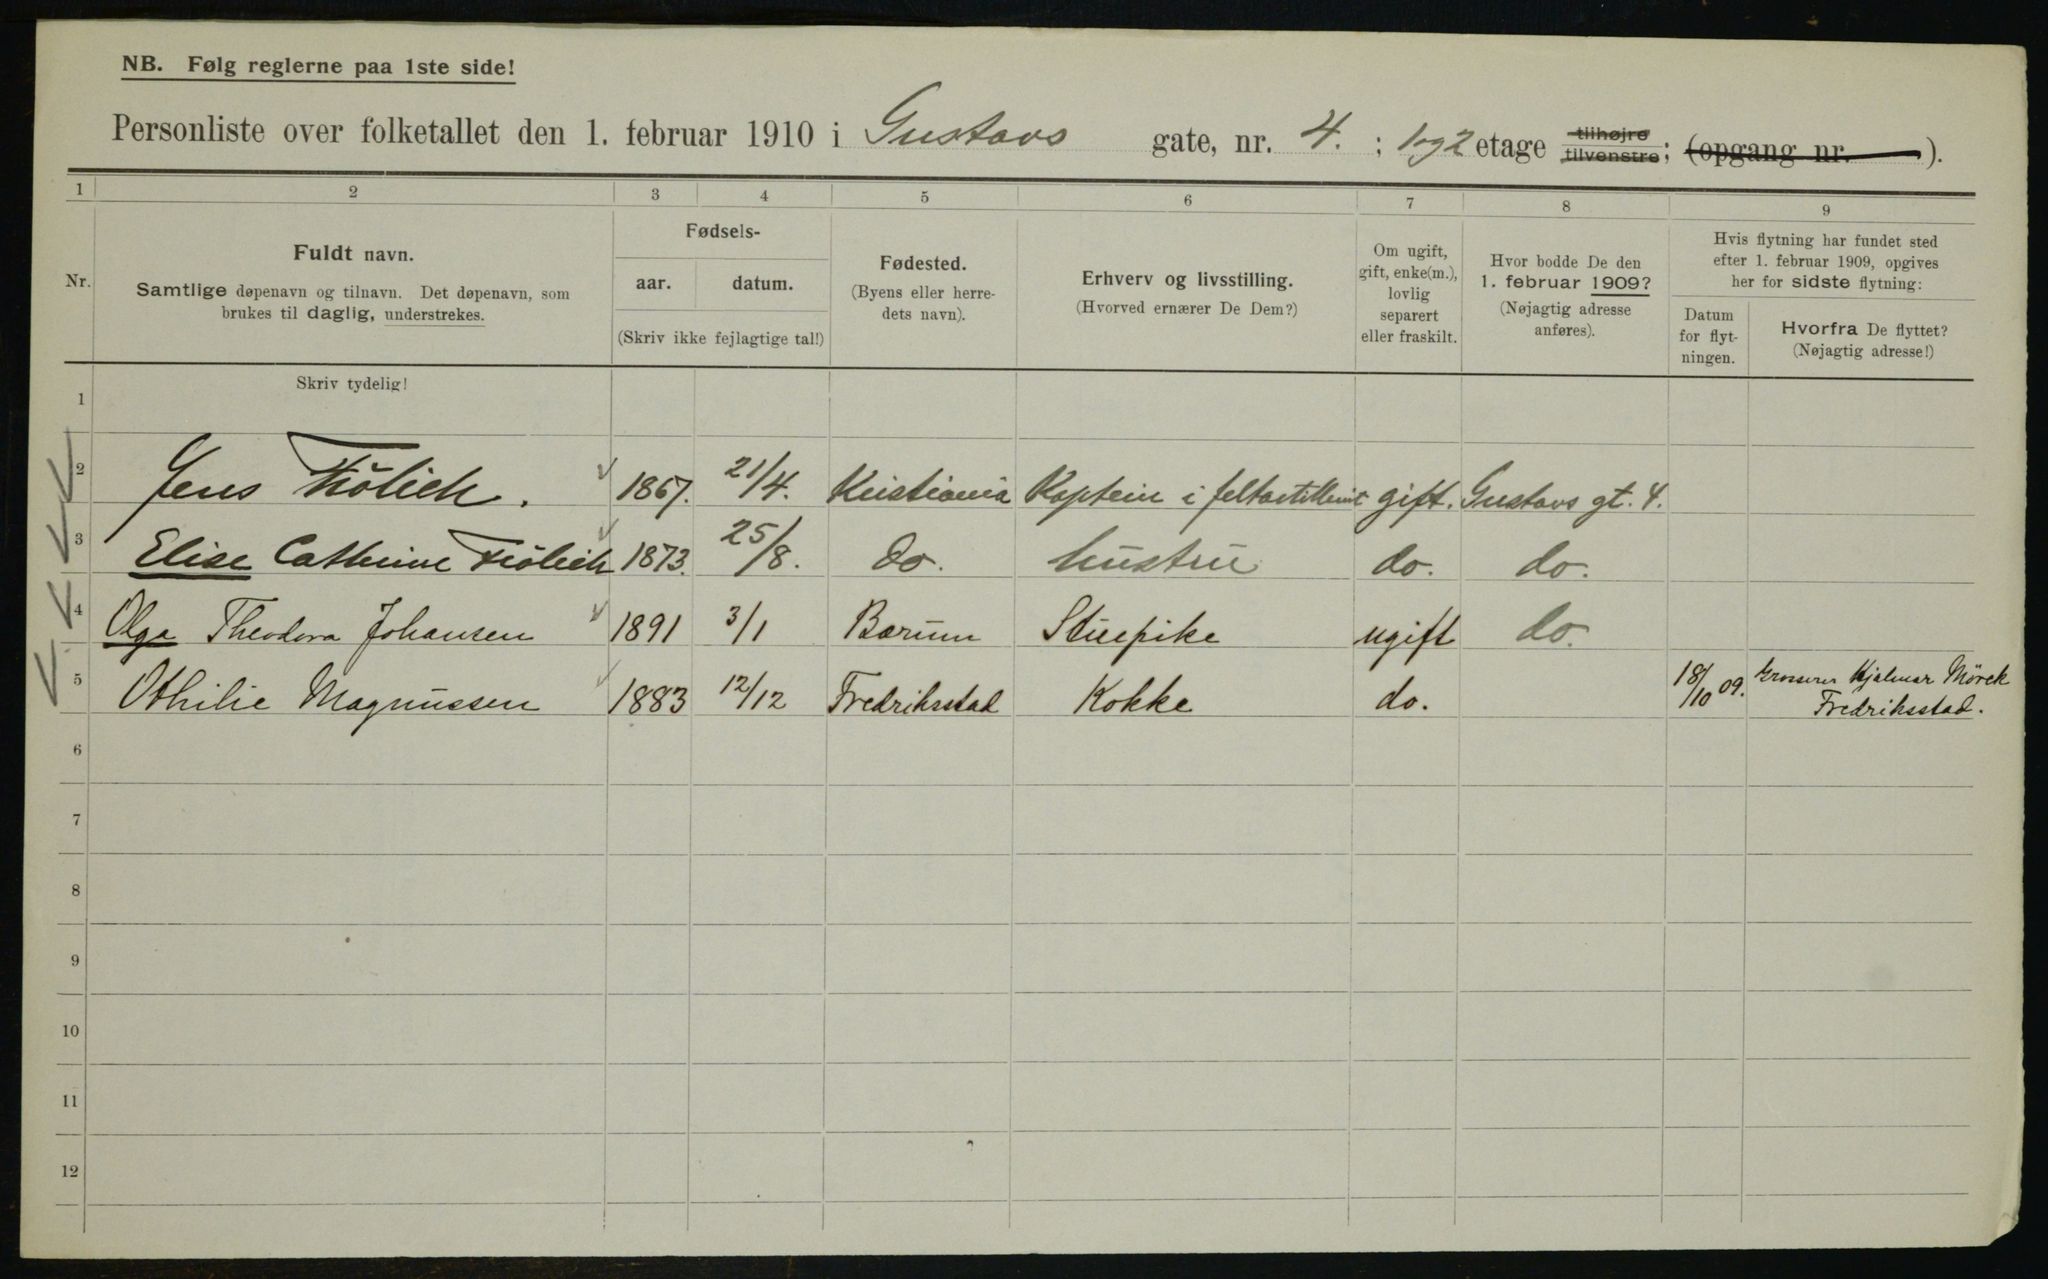 NB. Følg reglerne paa 1ste side!
Personliste over folketallet den 1. februar 1910 i Gustavs gate, nr. 4. ; 1 og 2 etage tilhøjre tilvenstre; (opgang nr. ).
1 2 3 4 5 6 7 8 9
Nr.
Fuldt navn.
Samtlige døpenavn og tilnavn. Det døpenavn, som
brukes til daglig, understrekes.
Skriv tydelig!
Fødsels-
aar. datum.
(Skriv ikke fejlagtige tal!)
Fødested.
(Byens eller herre-
dets navn).
Erhverv og livsstilling.
(Hvorved ernærer De Dem?)
Om ugift,
gift, enke(m.),
lovlig
separert
eller fraskilt.
Hvor bodde De den
1. februar 1909?
(Nøjagtig adresse
anføres).
Hvis flytning har fundet sted
efter 1. februar 1909, opgives
her for sidste flytning:
Datum
for flyt-
ningen.
Hvorfra De flyttet?
(Nøjagtig adresse!)
1
2 Jens Frölich. 1867. 21/4. Kristiania Kaptein i feltartilleriet gift. Gustavs gt. 4.
3 Elise Cathrine Frölich 1873. 25/8. do. hustru do. do.
4 Olga Theodora Johansen 1891 3/1 Bærum Stuepike ugift do.
5 Othilie Magnussen 1883 12/12 Fredriksstad Kokke do. 18/10 09. Grosserer Hjalmar Mörck
Fredriksstad.
6
7
8
9
10
11
12